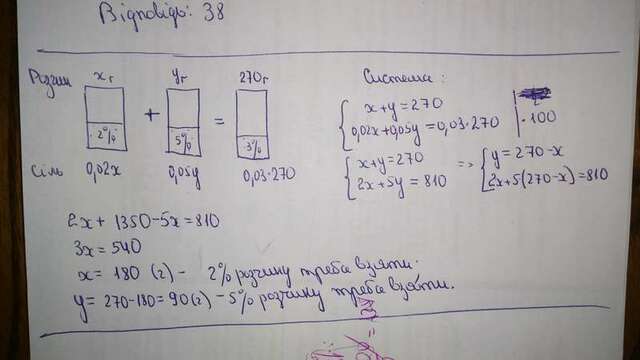 Відповідь: 38
Розчин x г y г 270 г
2% + 5% = 3%
Сіль 0,02x 0,05y 0,03·270
Система:
x+y=270
0,02x+0,05y=0,03·270 |·100
x+y=270
2x+5y=810
=> y=270-x
2x+5(270-x)=810
2x+1350-5x=810
3x=540
x=180 (г) - 2% розчину треба взяти.
y=270-180=90(г) - 5% розчину треба взяти.